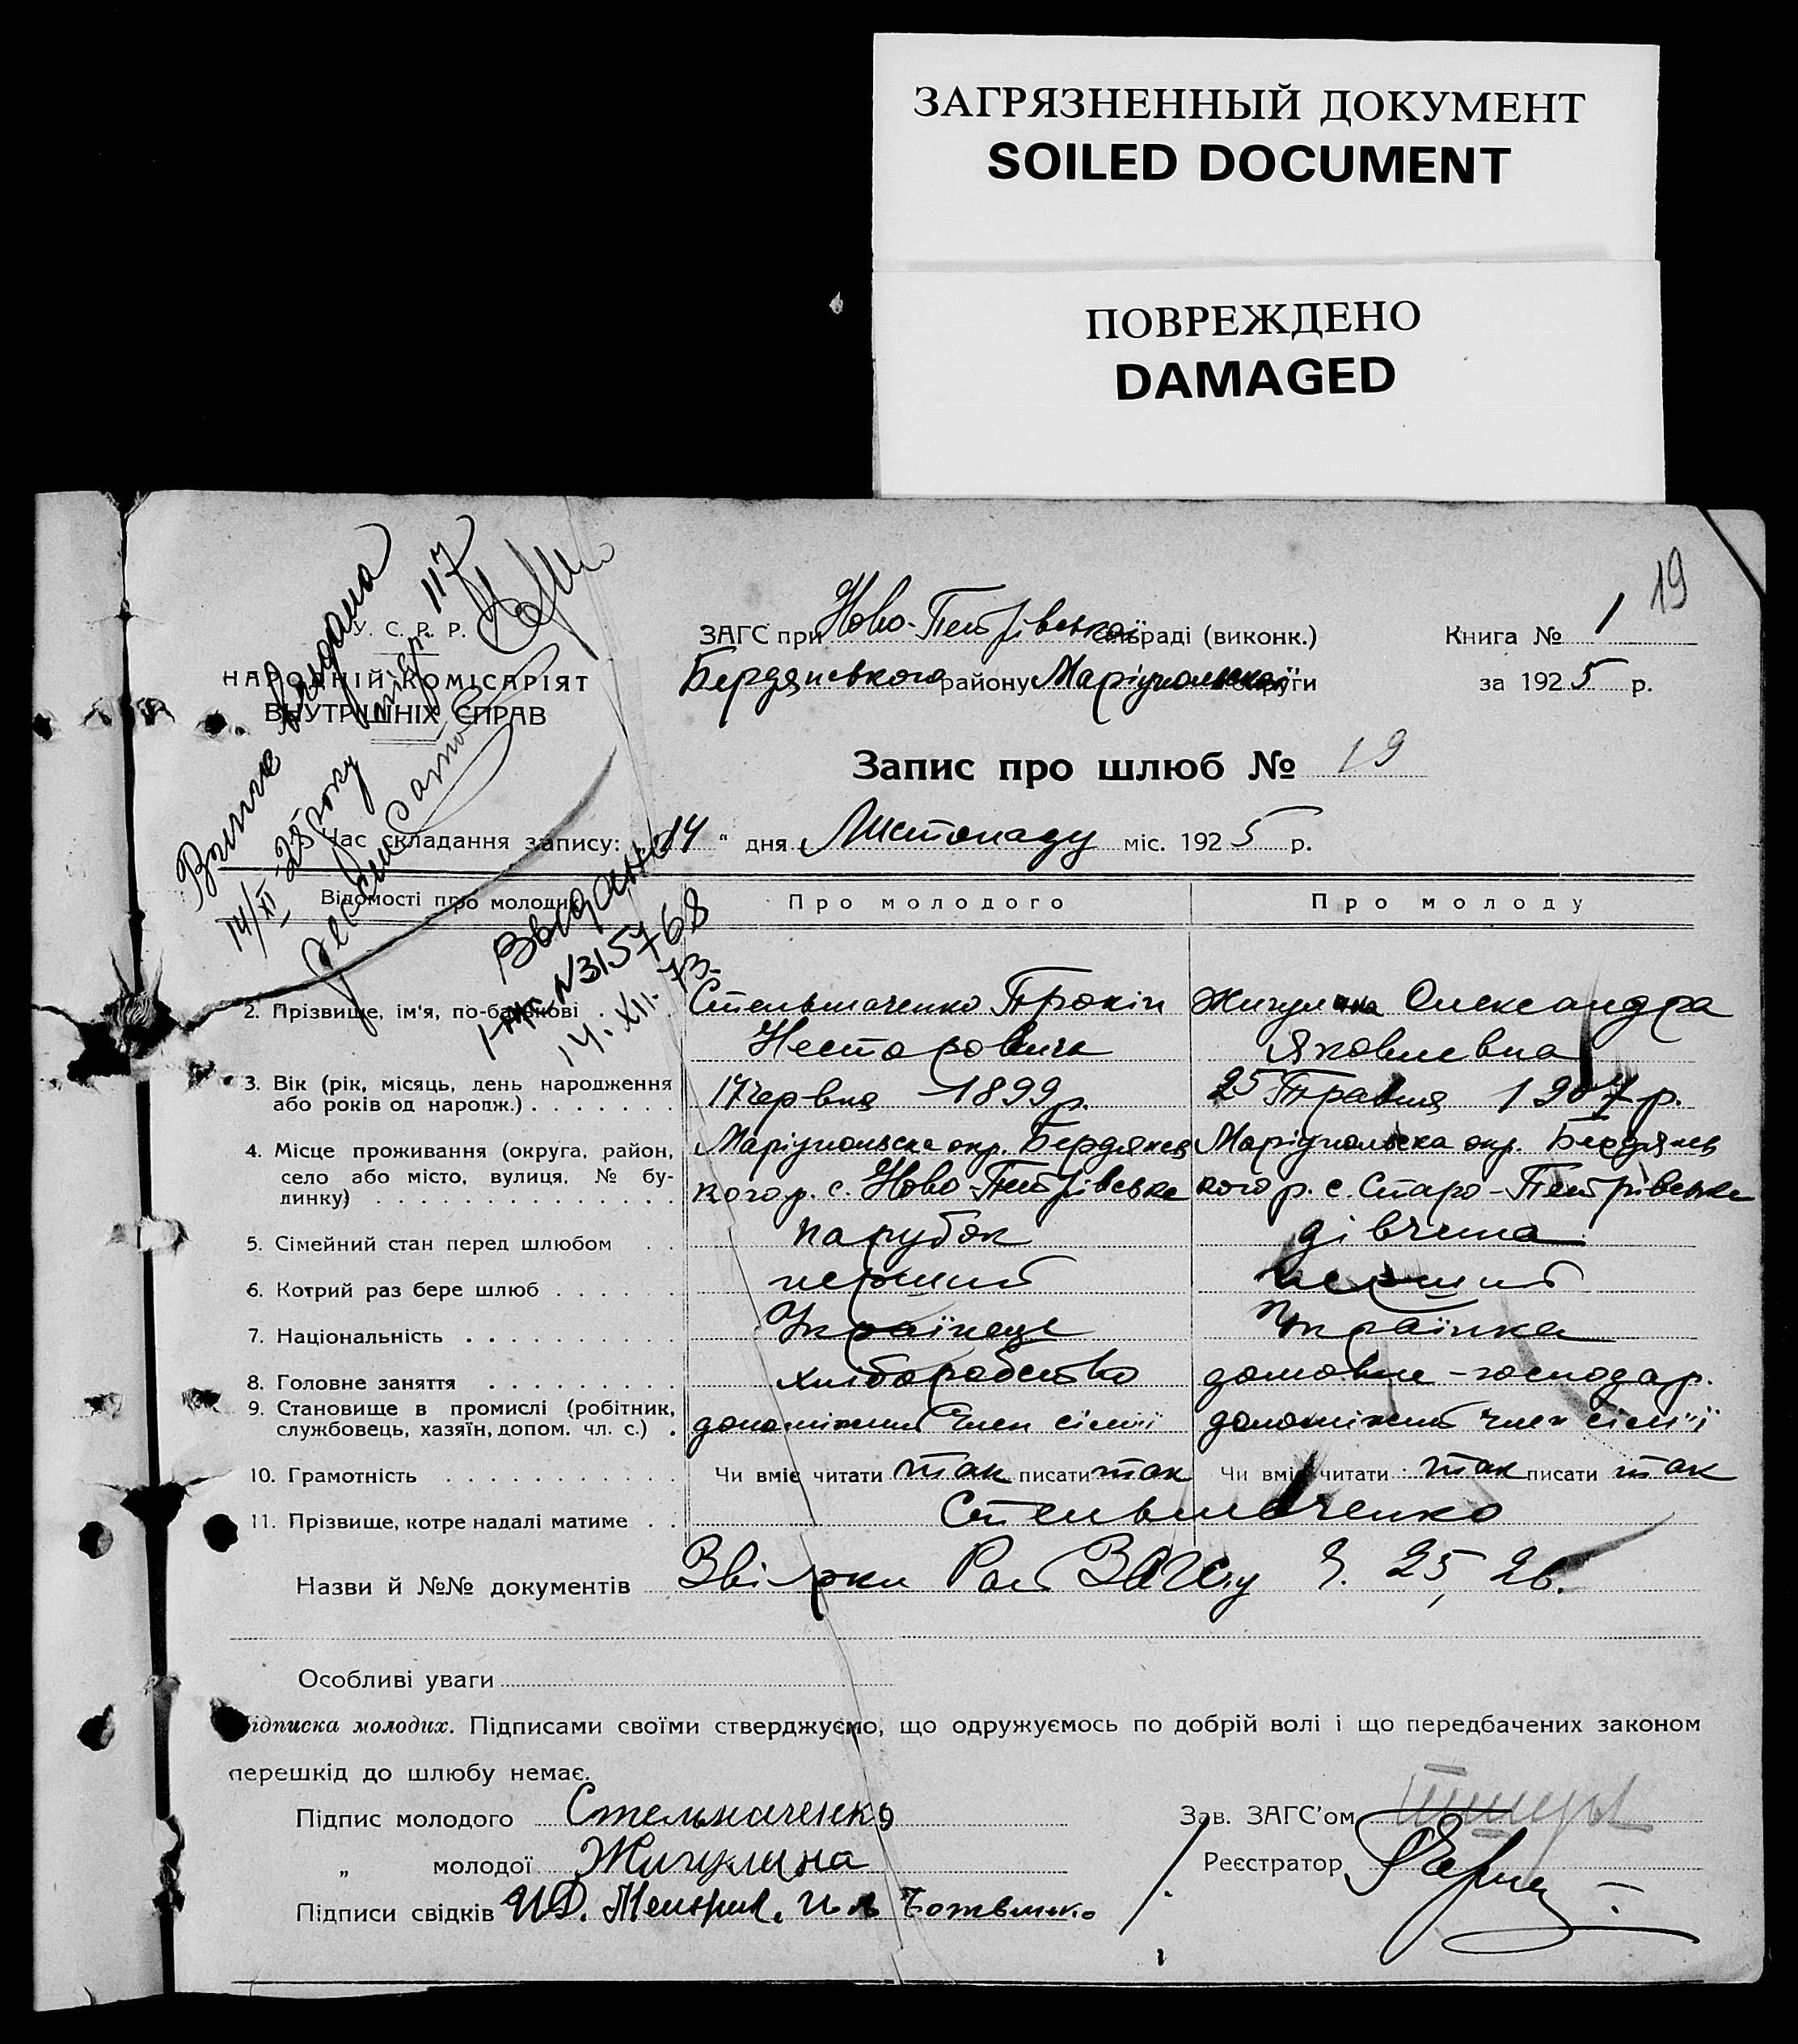 ЗАГРЯЗНЕННЫЙ ДОКУМЕНТ
SOILED DOCUMENT
ПОВРЕЖДЕНО
DAMAGED
19
У. С. Р. Р.
НАРОДНІЙ КОМІСАРІЯТ
ВНУТРІШНІХ СПРАВ
14/XI 25 року 117
ЗАГС при Ново-Петрівській раді (виконк.)
Книга № 1
Бердянського району Маріупольської округи
за 1925 р.
Запис про шлюб № 19
Час складання запису: „14" дня Листопаду міс. 1925 р.
Видано
№315768
14.XII.73
Відомості про молодих
Про молодого
Про молоду
2. Прізвище, ім'я, по-батькові
Стельмаченко Прокіп
Жигулина Олександра
Несторовича
Яковлевна
3. Вік (рік, місяць, день народження
або років од народж.)
17 червня 1899 р.
25 Травня 1907 р.
4. Місце проживання (округа, район,
село або місто, вулиця, № бу-
динку)
Маріупольска окр. Бердянсь
кого р. с. Ново-Петрівське
Маріупольска окр. Бердянсь
кого р. с. Старо-Петрівське
5. Сімейний стан перед шлюбом
парубок
дівчина
6. Котрий раз бере шлюб
перший
перший
7. Національність
Українець
Українка
8. Головне заняття
хліборобство
домовне-господар.
9. Становище в промислі (робітник,
службовець, хазяїн, допом. чл. с.)
допоміжний член сім'ї
допоміжний член сім'ї
10. Грамотність
Чи вміє читати так писати так
Чи вміє читати так писати так
11. Прізвище, котре надалі матиме
Стельмаченко
Назви й №№ документів Звірки Рай ЗАГСу Ч. 25, 26.
Особливі уваги
Підписка молодих. Підписами своїми стверджуємо, що одружуємось по добрій волі і що передбачених законом
перешкід до шлюбу немає.
Підпис молодого Стельмаченко
Зав. ЗАГС'ом
„ молодої Жигулина
Реєстратор
Підписи свідків